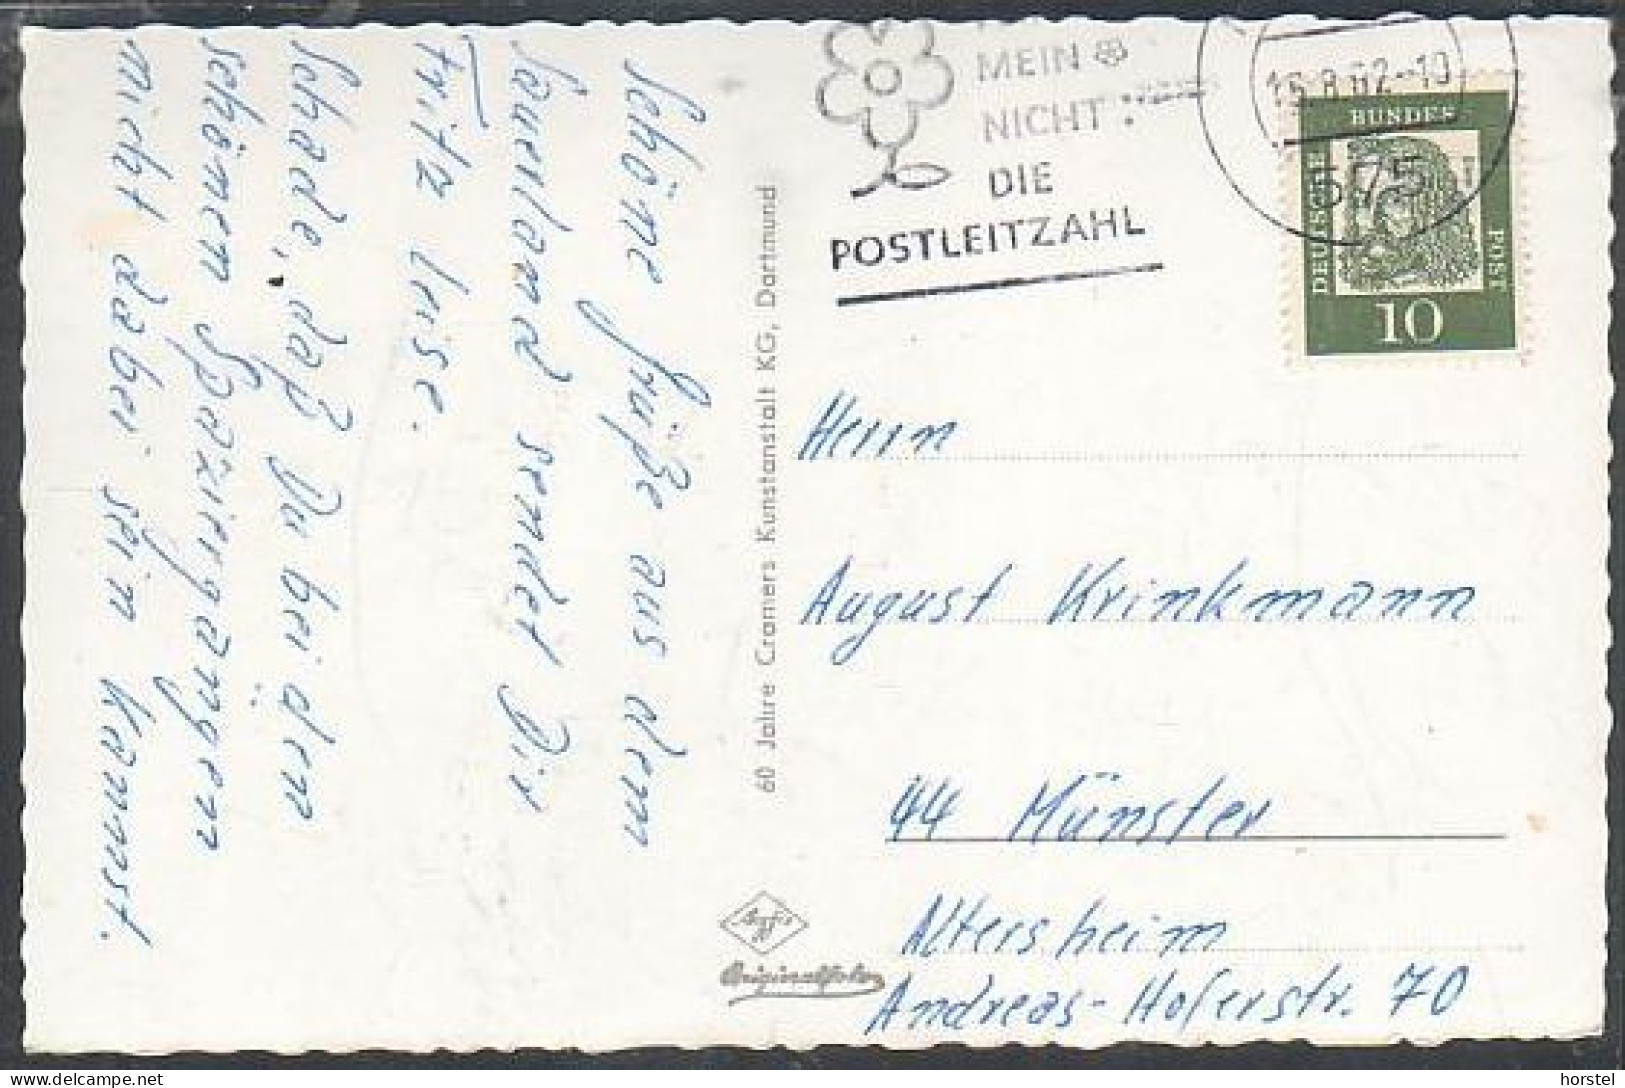 Schöne Grüße aus dem
Sauerland sendet Dir
Fritz Luse.
Schade, daß Du bei den
schönen Spaziergängen
nicht dabei sein kannst.
60 Jahre Cramers Kunstanstalt KG, Dortmund
MEIN
NICHT
DIE
POSTLEITZAHL
15.8.62-10
575
DEUTSCHE
BUNDES
POST
10
Herrn
August Krinkmann
44 Münster
Altersheim
Andreas-Hoferstr. 70
Agfa
Originalfoto
horstel
www.delcampe.net